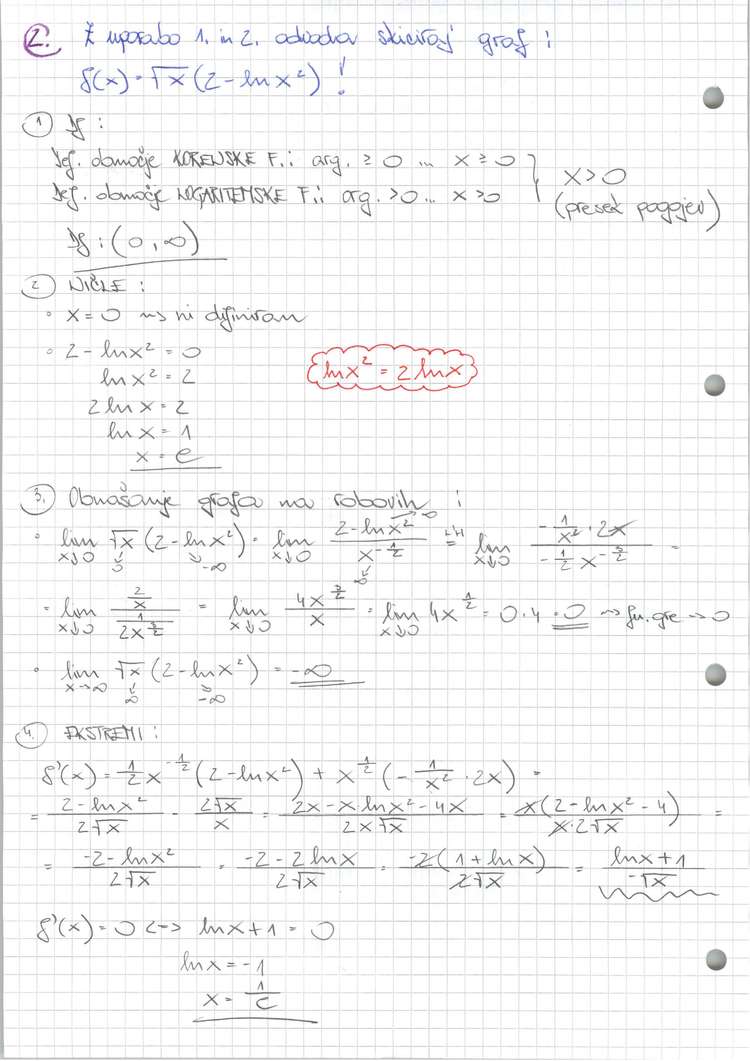 2. Z uporabo 1. in 2. odvoda skiciraj graf :
f(x) = √x (2 - ln x²) !
1 Df :
Def. območje KORENSKE F.: arg. ≥ 0 ... x ≥ 0
Def. območje LOGARITEMSKE F.: arg. > 0 ... x > 0 } x > 0 (presek pogojev)
Df : (0, ∞)
2 NIČLE :
• x = 0 ⇝ ni definiran
• 2 - ln x² = 0
ln x² = 2
ln x² = 2 ln x
2 ln x = 2
ln x = 1
x = e
3. Obnašanje grafa na robovih :
• lim x↓0 √x (2 - ln x²) = lim x↓0 (2 - ln x²)/(x^(-1/2)) =(L'H) lim x↓0 (-1/x² · 2x)/(-1/2 x^(-3/2)) =
= lim x↓0 (2/x)/(1/(2x^(3/2))) = lim x↓0 4x^(3/2)/x = lim x↓0 4x^(1/2) = 0·4 = 0 ⇝ fu. gre → 0
• lim x→∞ √x (2 - ln x²) = -∞
4. EKSTREMI :
f'(x) = 1/2 x^(-1/2) (2 - ln x²) + x^(1/2) (-1/x² · 2x) =
= (2 - ln x²)/(2√x) - 2√x/x = (2x - x · ln x² - 4x)/(2x√x) = x(2 - ln x² - 4)/(x·2√x) =
= (-2 - ln x²)/(2√x) = (-2 - 2 ln x)/(2√x) = -2(1 + ln x)/(2√x) = (ln x + 1)/(-√x)
f'(x) = 0 <-> ln x + 1 = 0
ln x = -1
x = 1/e